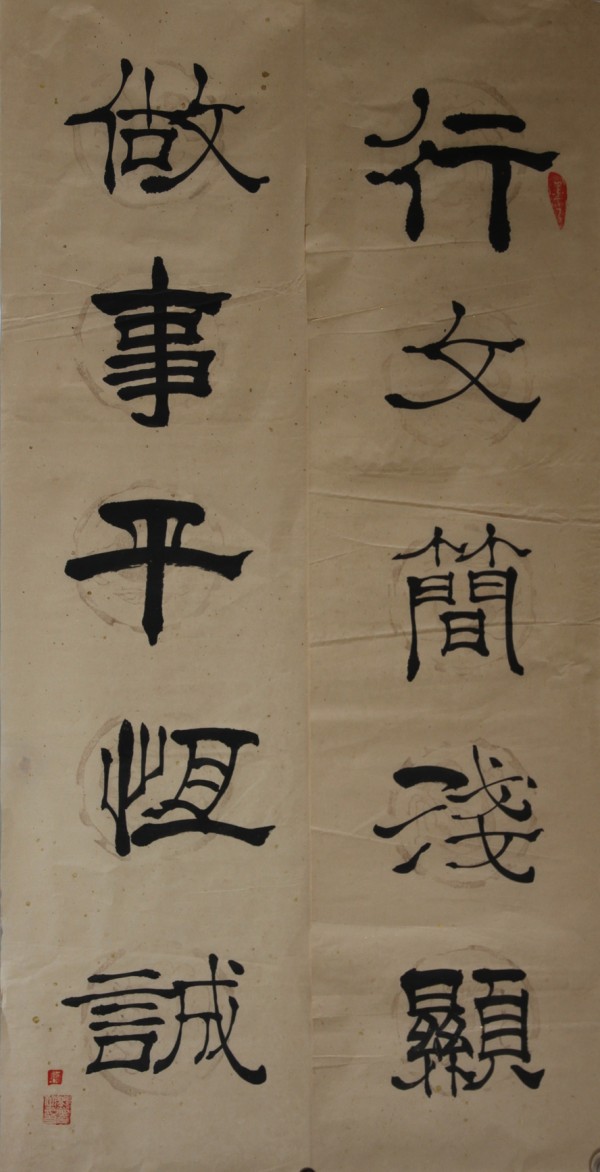 行文簡淺顯
做事平恆誠